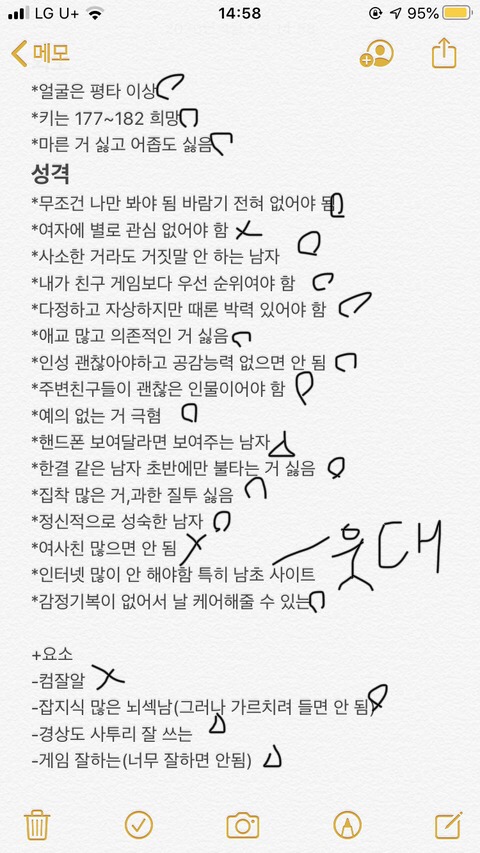 LG U+ 14:58 95%
메모
*얼굴은 평타 이상
*키는 177~182 희망
*마른 거 싫고 어좁도 싫음
성격
*무조건 나만 봐야 됨 바람기 전혀 없어야 됨
*여자에 별로 관심 없어야 함
*사소한 거라도 거짓말 안 하는 남자
*내가 친구 게임보다 우선 순위여야 함
*다정하고 자상하지만 때론 박력 있어야 함
*애교 많고 의존적인 거 싫음
*인성 괜찮아야하고 공감능력 없으면 안 됨
*주변친구들이 괜찮은 인물이어야 함
*예의 없는 거 극혐
*핸드폰 보여달라면 보여주는 남자
*한결 같은 남자 초반에만 불타는 거 싫음
*집착 많은 거,과한 질투 싫음
*정신적으로 성숙한 남자
*여사친 많으면 안 됨
웃대
*인터넷 많이 안 해야함 특히 남초 사이트
*감정기복이 없어서 날 케어해줄 수 있는
+요소
-컴잘알
-잡지식 많은 뇌섹남(그러나 가르치려 들면 안 됨)
-경상도 사투리 잘 쓰는
-게임 잘하는(너무 잘하면 안됨)